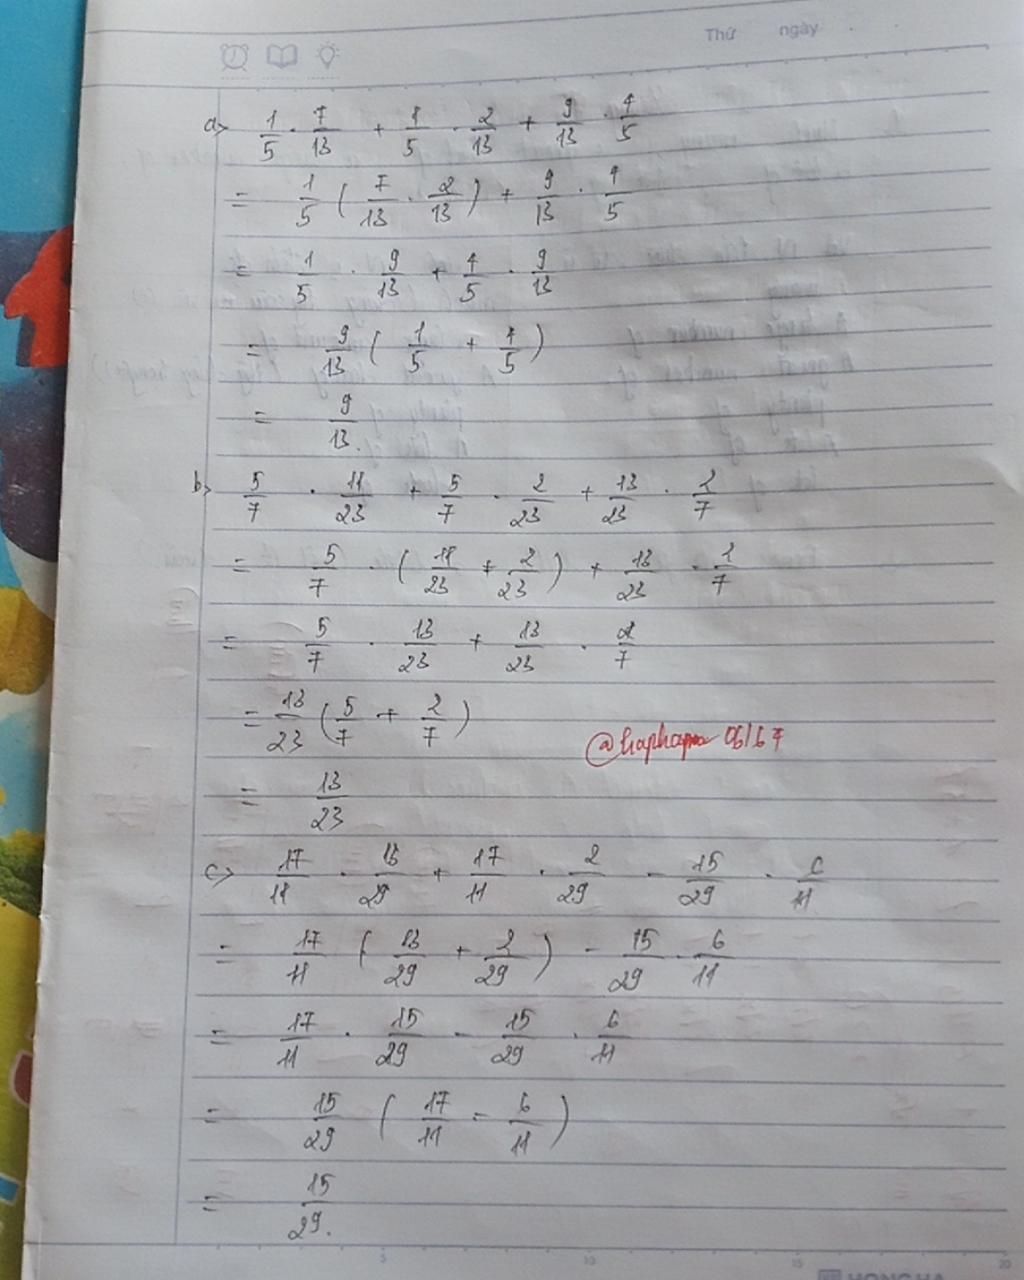 Thứ ngày
a) 1/5 . 7/13 + 1/5 . 2/13 + 9/13 . 4/5
= 1/5 ( 7/13 . 2/13 ) + 9/13 . 4/5
= 1/5 . 9/13 + 4/5 . 9/13
= 9/13 ( 1/5 + 4/5 )
= 9/13.
b) 5/7 . 11/23 + 5/7 . 2/23 + 13/23 . 2/7
= 5/7 . ( 11/23 + 2/23 ) + 13/23 . 2/7
= 5/7 . 13/23 + 13/23 . 2/7
= 13/23 ( 5/7 + 2/7 )
= 13/23
c) 17/11 . 13/29 + 17/11 . 2/29 - 15/29 . 6/11
= 17/11 ( 13/29 + 2/29 ) - 15/29 . 6/11
= 17/11 . 15/29 - 15/29 . 6/11
= 15/29 ( 17/11 - 6/11 )
= 15/29.
5 10 15 20
HONG HA